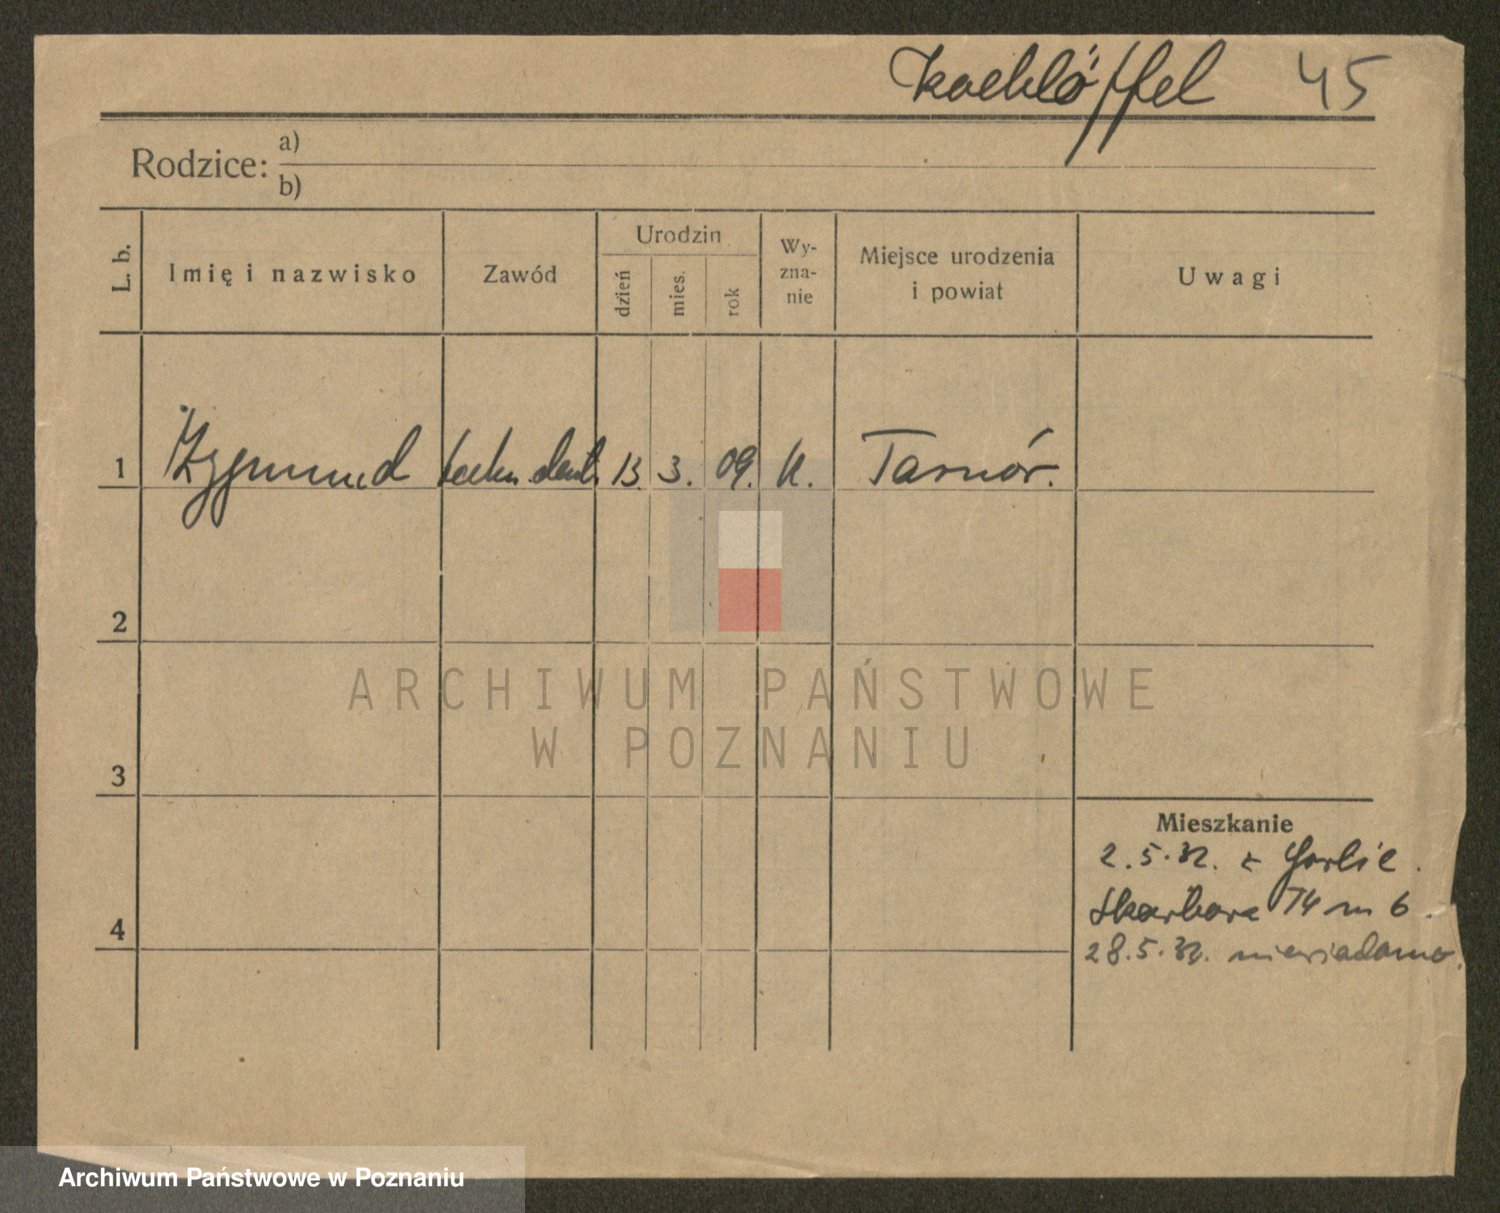 Kochlöffel 45
Rodzice: a)
b)
L. b.
Imię i nazwisko
Zawód
Urodzin
dzień
mies.
rok
Wy-
zna-
nie
Miejsce urodzenia
i powiat
Uwagi
1 Zygmund techn. dent. 13. 3. 09. Tarnów.
2
ARCHIWUM PAŃSTWOWE
W POZNANIU
3
Mieszkanie
2.5.32. z Gorlic.
Skarbowa 14 m 6.
4
28.5.32. niewiadomo.
Archiwum Państwowe w Poznaniu